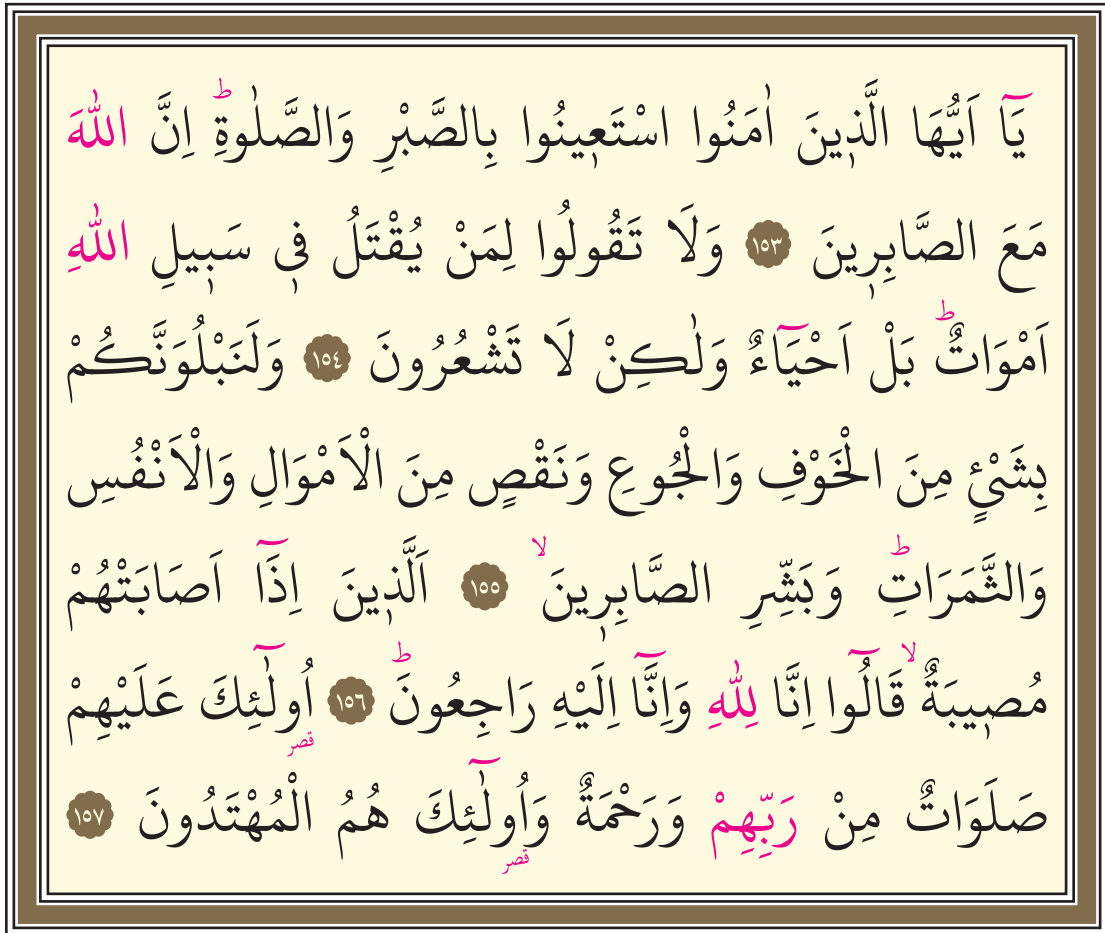 يَٓا اَيُّهَا الَّذ۪ينَ اٰمَنُوا اسْتَع۪ينُوا بِالصَّبْرِ وَالصَّلٰوةِۜ اِنَّ اللّٰهَ
مَعَ الصَّابِر۪ينَ ﴿١٥٣﴾ وَلَا تَقُولُوا لِمَنْ يُقْتَلُ ف۪ي سَب۪يلِ اللّٰهِ
اَمْوَاتٌۜ بَلْ اَحْيَٓاءٌ وَلٰكِنْ لَا تَشْعُرُونَ ﴿١٥٤﴾ وَلَنَبْلُوَنَّكُمْ
بِشَيْءٍ مِنَ الْخَوْفِ وَالْجُوعِ وَنَقْصٍ مِنَ الْاَمْوَالِ وَالْاَنْفُسِ
وَالثَّمَرَاتِۜ وَبَشِّرِ الصَّابِر۪ينَۙ ﴿١٥٥﴾ اَلَّذ۪ينَ اِذَٓا اَصَابَتْهُمْ
مُص۪يبَةٌۙ قَالُٓوا اِنَّا لِلّٰهِ وَاِنَّٓا اِلَيْهِ رَاجِعُونَۜ ﴿١٥٦﴾ اُو۬لٰٓئِكَ عَلَيْهِمْ
قصر
صَلَوَاتٌ مِنْ رَبِّهِمْ وَرَحْمَةٌ وَاُو۬لٰٓئِكَ هُمُ الْمُهْتَدُونَ ﴿١٥٧﴾
قصر